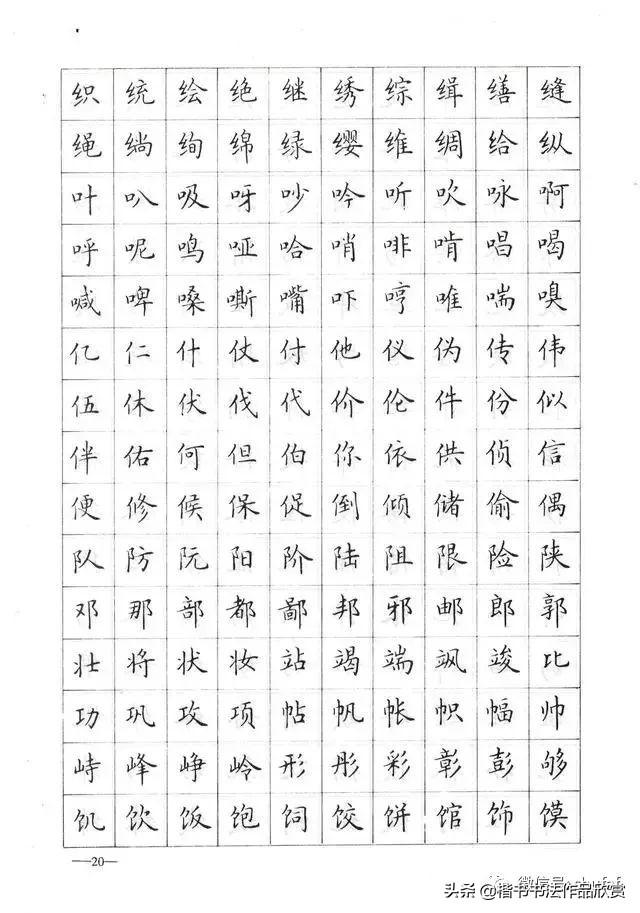 织 统 绘 绝 继 绣 综 缉 缮 缝
绳 绱 绚 绵 绿 缨 维 绸 给 纵
叶 叭 吸 呀 吵 吟 听 吹 咏 啊
呼 呢 鸣 哑 哈 哨 啡 啃 唱 喝
喊 啤 嗓 嘶 嘴 吓 哼 唯 喘 嗅
亿 仁 什 仗 付 他 仪 伪 传 伟
伍 休 伏 伐 代 价 伦 件 份 似
伴 佑 何 但 伯 你 依 供 侦 信
便 修 候 保 促 倒 倾 储 偷 偶
队 防 阮 阳 阶 陆 阻 限 险 陕
邓 那 部 都 鄙 邦 邪 邮 郎 郭
壮 将 状 妆 站 竭 端 飒 竣 比
功 巩 攻 项 帖 帆 帐 帜 幅 帅
峙 峰 峥 岭 形 彤 彩 彰 彭 够
饥 饮 饭 饱 饲 饺 饼 馆 饰 馍
—20—
头条 @楷书书法作品欣赏